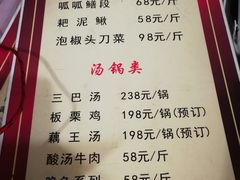 呱呱鳝段 68元/斤
耙泥鳅 58元/斤
泡椒头刀菜 98元/斤
汤锅类
三巴汤 238元/锅
板栗鸡 198元/锅(预订)
藕王汤 198元/锅(预订)
酸汤牛肉 58元/斤